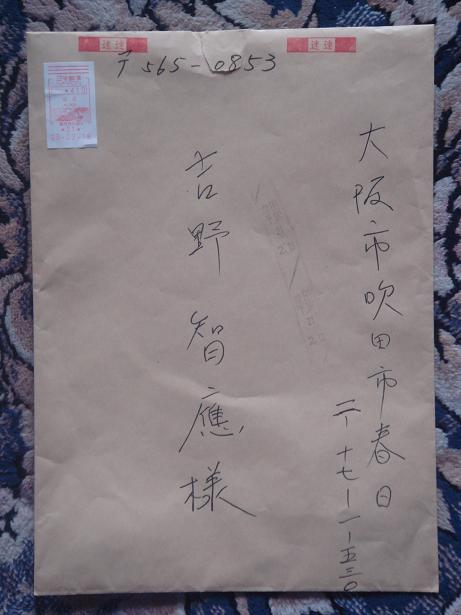 速達
速達
〒565-0853
大阪市吹田市春日
二-十七-一-五三〇
吉野 智應様